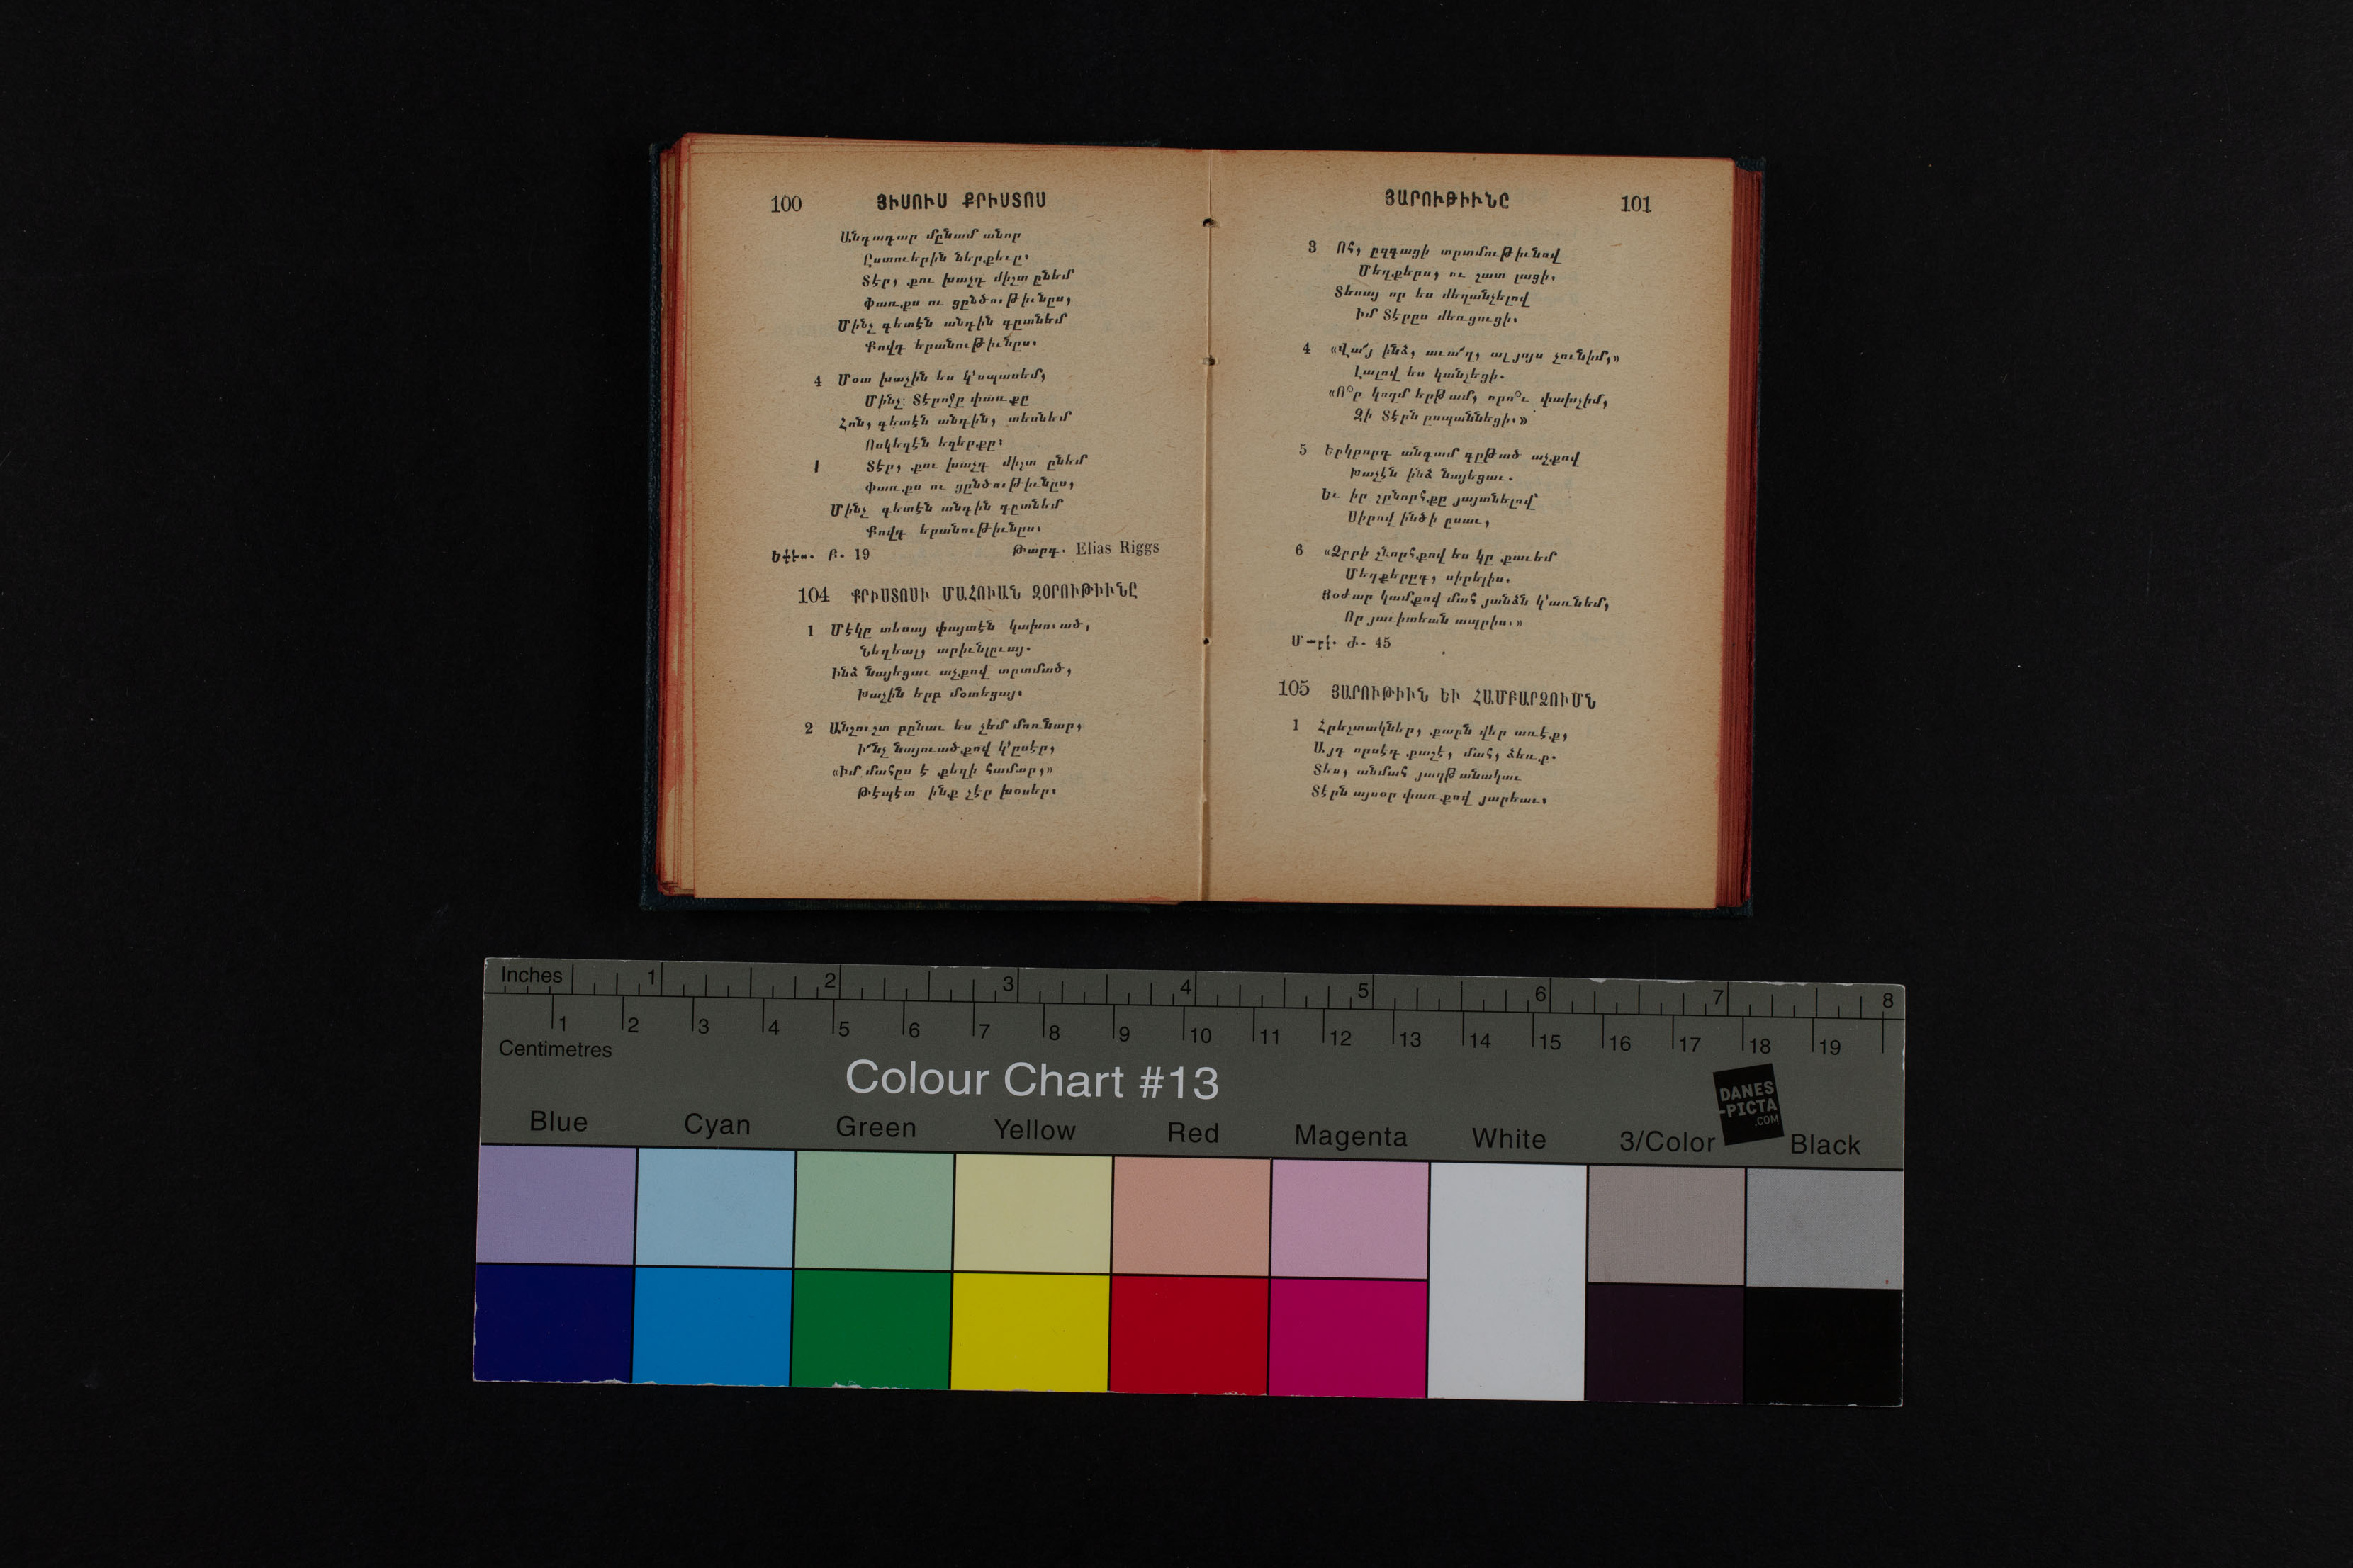 100 ՅԻՍՈՒՍ ՔՐԻՍՏՈՍ
Անդադար մընամ անոր
Ըստուերին ներքեւը.
Տէր, քու խաչդ միշտ ընեմ
Փառքս ու ցընծութիւնըս,
Մինչ գետէն անդին գըտնեմ
Քովդ երանութիւնըս.
4 Մօտ խաչին ես կ'սպասեմ,
Մինչ Տէրոջը փառքը
Հոն, գետէն անդին, տեսնեմ
Ոսկեղէն եզերքը.
Տէր, քու խաչդ միշտ ընեմ
Փառքս ու ցընծութիւնըս,
Մինչ գետէն անդին գըտնեմ
Քովդ երանութիւնըս.
Եփես. Բ. 19 Թարգ. Elias Riggs
104 ՔՐԻՍՏՈՍԻ ՄԱՀՈՒԱՆ ԶՕՐՈՒԹԻՒՆԸ
1 Մէկը տեսայ փայտէն կախուած,
Նեղեալ, արիւնլըւայ.
Ինձ նայեցաւ աչքով տրտմած,
Խաչին երբ մօտեցայ.
2 Անշուշտ բընաւ ես չեմ մոռնար,
Ի՜նչ նայուածքով կ'ըսէր,
«Իմ մահըս է քեզի համար,»
Թէպէտ ինք չէր խօսեր.
ՅԱՐՈՒԹԻՒՆԸ 101
3 Ոհ, ըզգացի տրտմութիւնով
Մեղքերս, ու շատ լացի.
Տեսայ որ ես մեղանչելով
Իմ Տէրըս մեռցուցի.
4 «Վա՜յ ինձ, աւա՜ղ, ալ յոյս չունիմ,»
Լալով ես կանչեցի.
«Ո՞ր կողմ երթամ, որո՞ւ փախչիմ,
Զի Տէրն ըսպաննեցի.»
5 Երկրորդ անգամ գըթած աչքով
Խաչէն ինձ նայեցաւ.
Եւ իր շընորհքը յայտնելով
Սիրով ինծի ըսաւ,
6 «Ձըրի շնորհքով ես կը քաւեմ
Մեղքերըդ, սիրելիս.
Յօժար կամքով մահ յանձն կ'առնեմ,
Որ յաւիտեան ապրիս.»
Մարկ. Ժ. 45
105 ՅԱՐՈՒԹԻՒՆ ԵՒ ՀԱՄԲԱՐՁՈՒՄՆ
1 Հրեշտակներ, քարն վեր առէք,
Այդ որսէդ քաշէ, մահ, ձեռք.
Տես, անմահ յաղթանակաւ
Տէրն այսօր փառքով յարեաւ.
Inches 1 2 3 4 5 6 7 8
1 2 3 4 5 6 7 8 9 10 11 12 13 14 15 16 17 18 19
Centimetres
Colour Chart #13
DANES
-PICTA
.COM
Blue Cyan Green Yellow Red Magenta White 3/Color Black